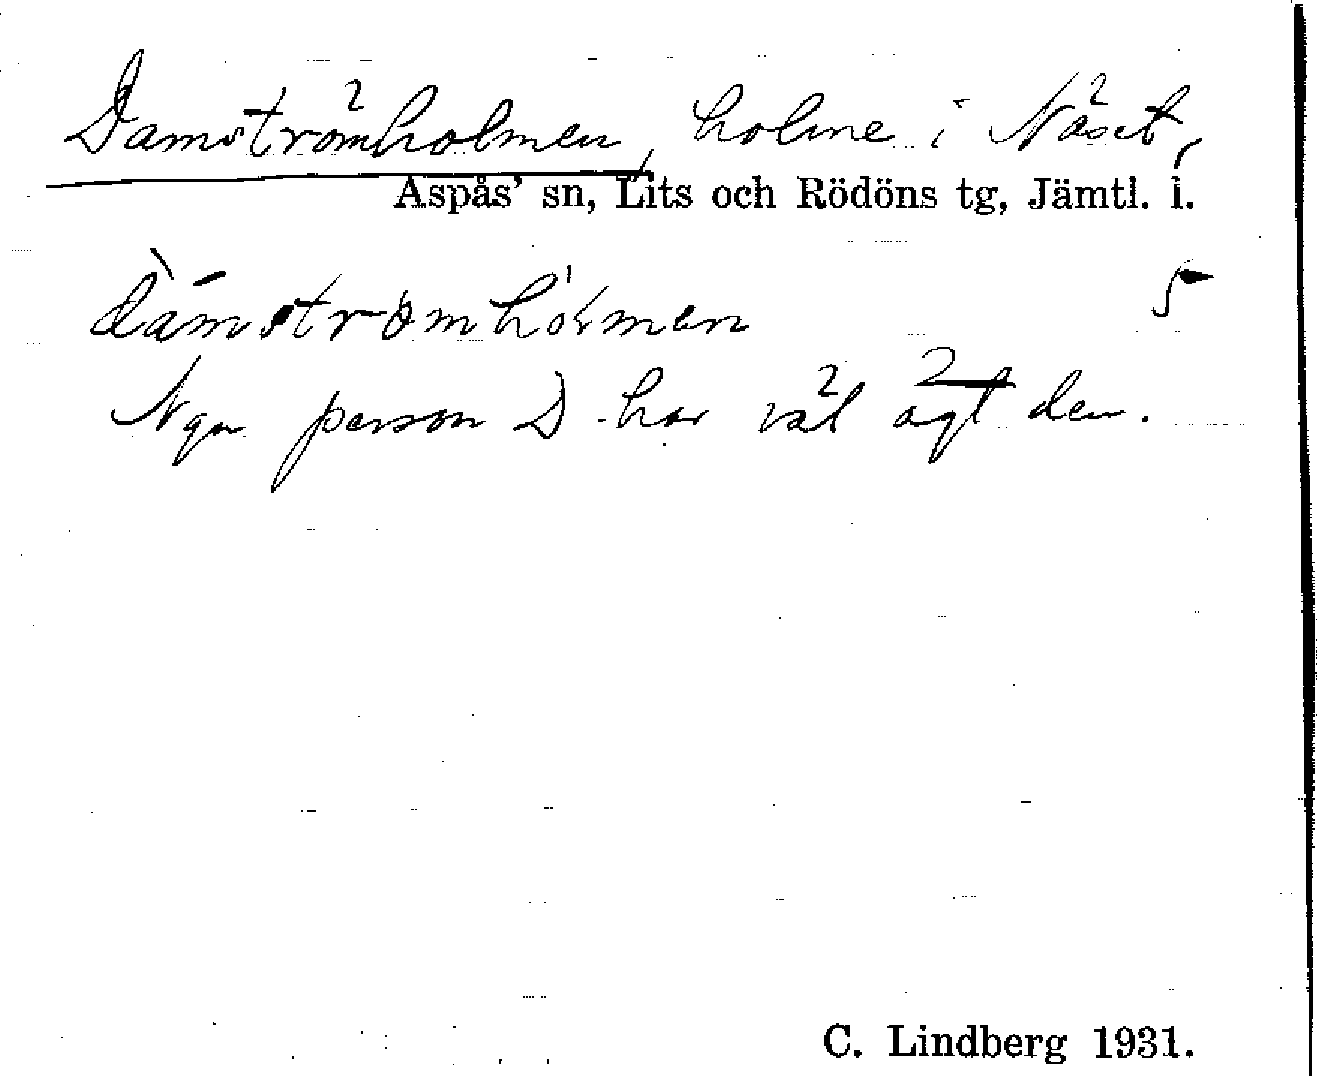 Damströmholmen, holme i Näset,
Aspås' sn, Lits och Rödöns tg, Jämtl. i.
5
dàmströmhólmen
Ngn person D har väl ägt den.
C. Lindberg 1931.